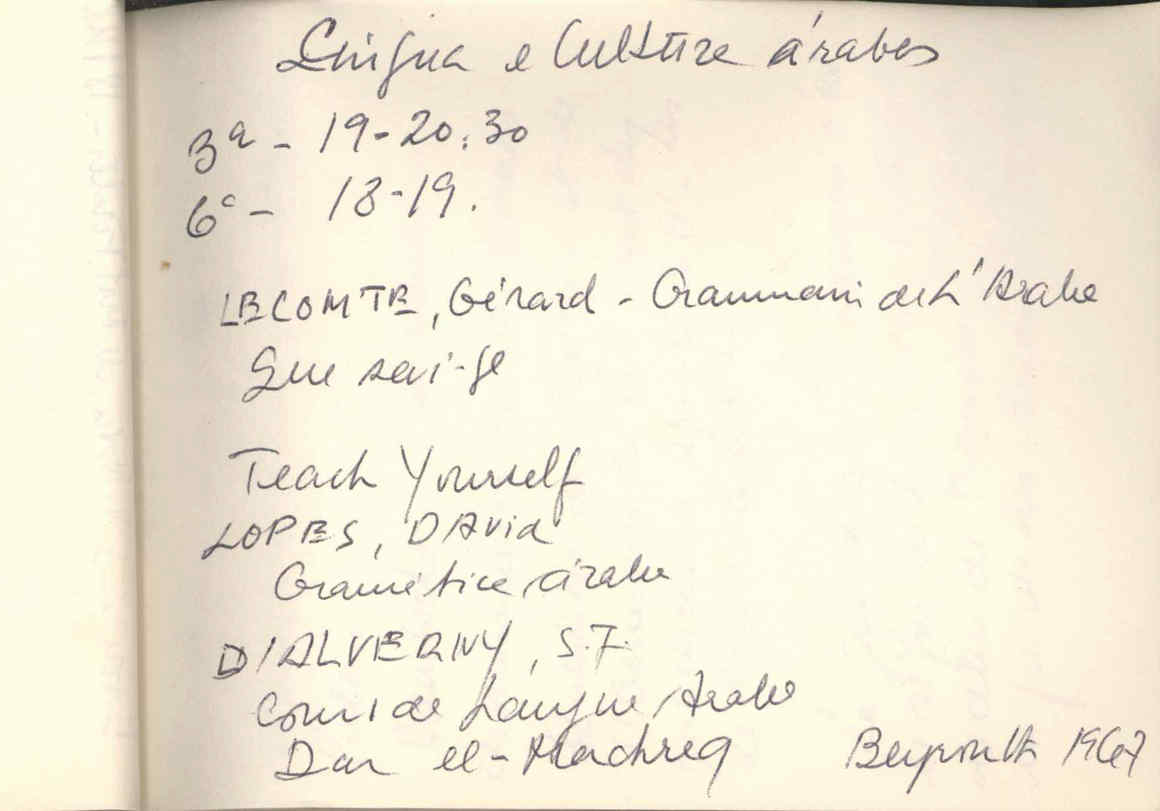 Língua e Cultura árabes
3ª - 19-20.30
6ª - 18-19.
LECOMTE, Gérard - Grammaire de L'Arabe
Que sai-je
Teach Yourself
LOPES, DAvid
Gramática árabe
D'ALVERNY, S.J.
Cours de Langue Arabe
Dar el-Machreq Beyrouth 1967